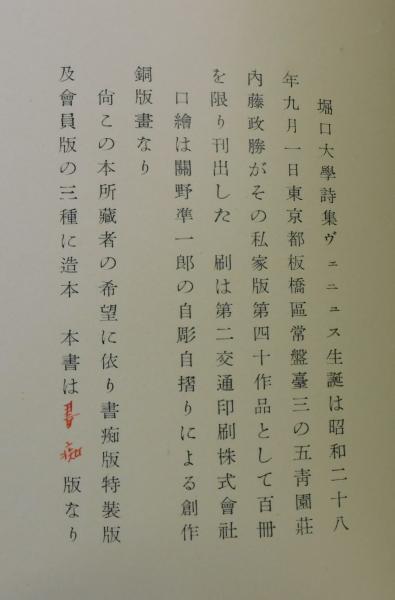 堀口大學詩集ヴェニュス生誕は昭和二十八
年九月一日東京都板橋區常盤臺三の五靑園莊
內藤政勝がその私家版第四十作品として百冊
を限り刊出した　刷は第二交通印刷株式會社
口繪は關野準一郎の自彫自摺りによる創作
銅版畫なり
尙この本所藏者の希望に依り書痴版特裝版
及會員版の三種に造本　本書は書痴版なり